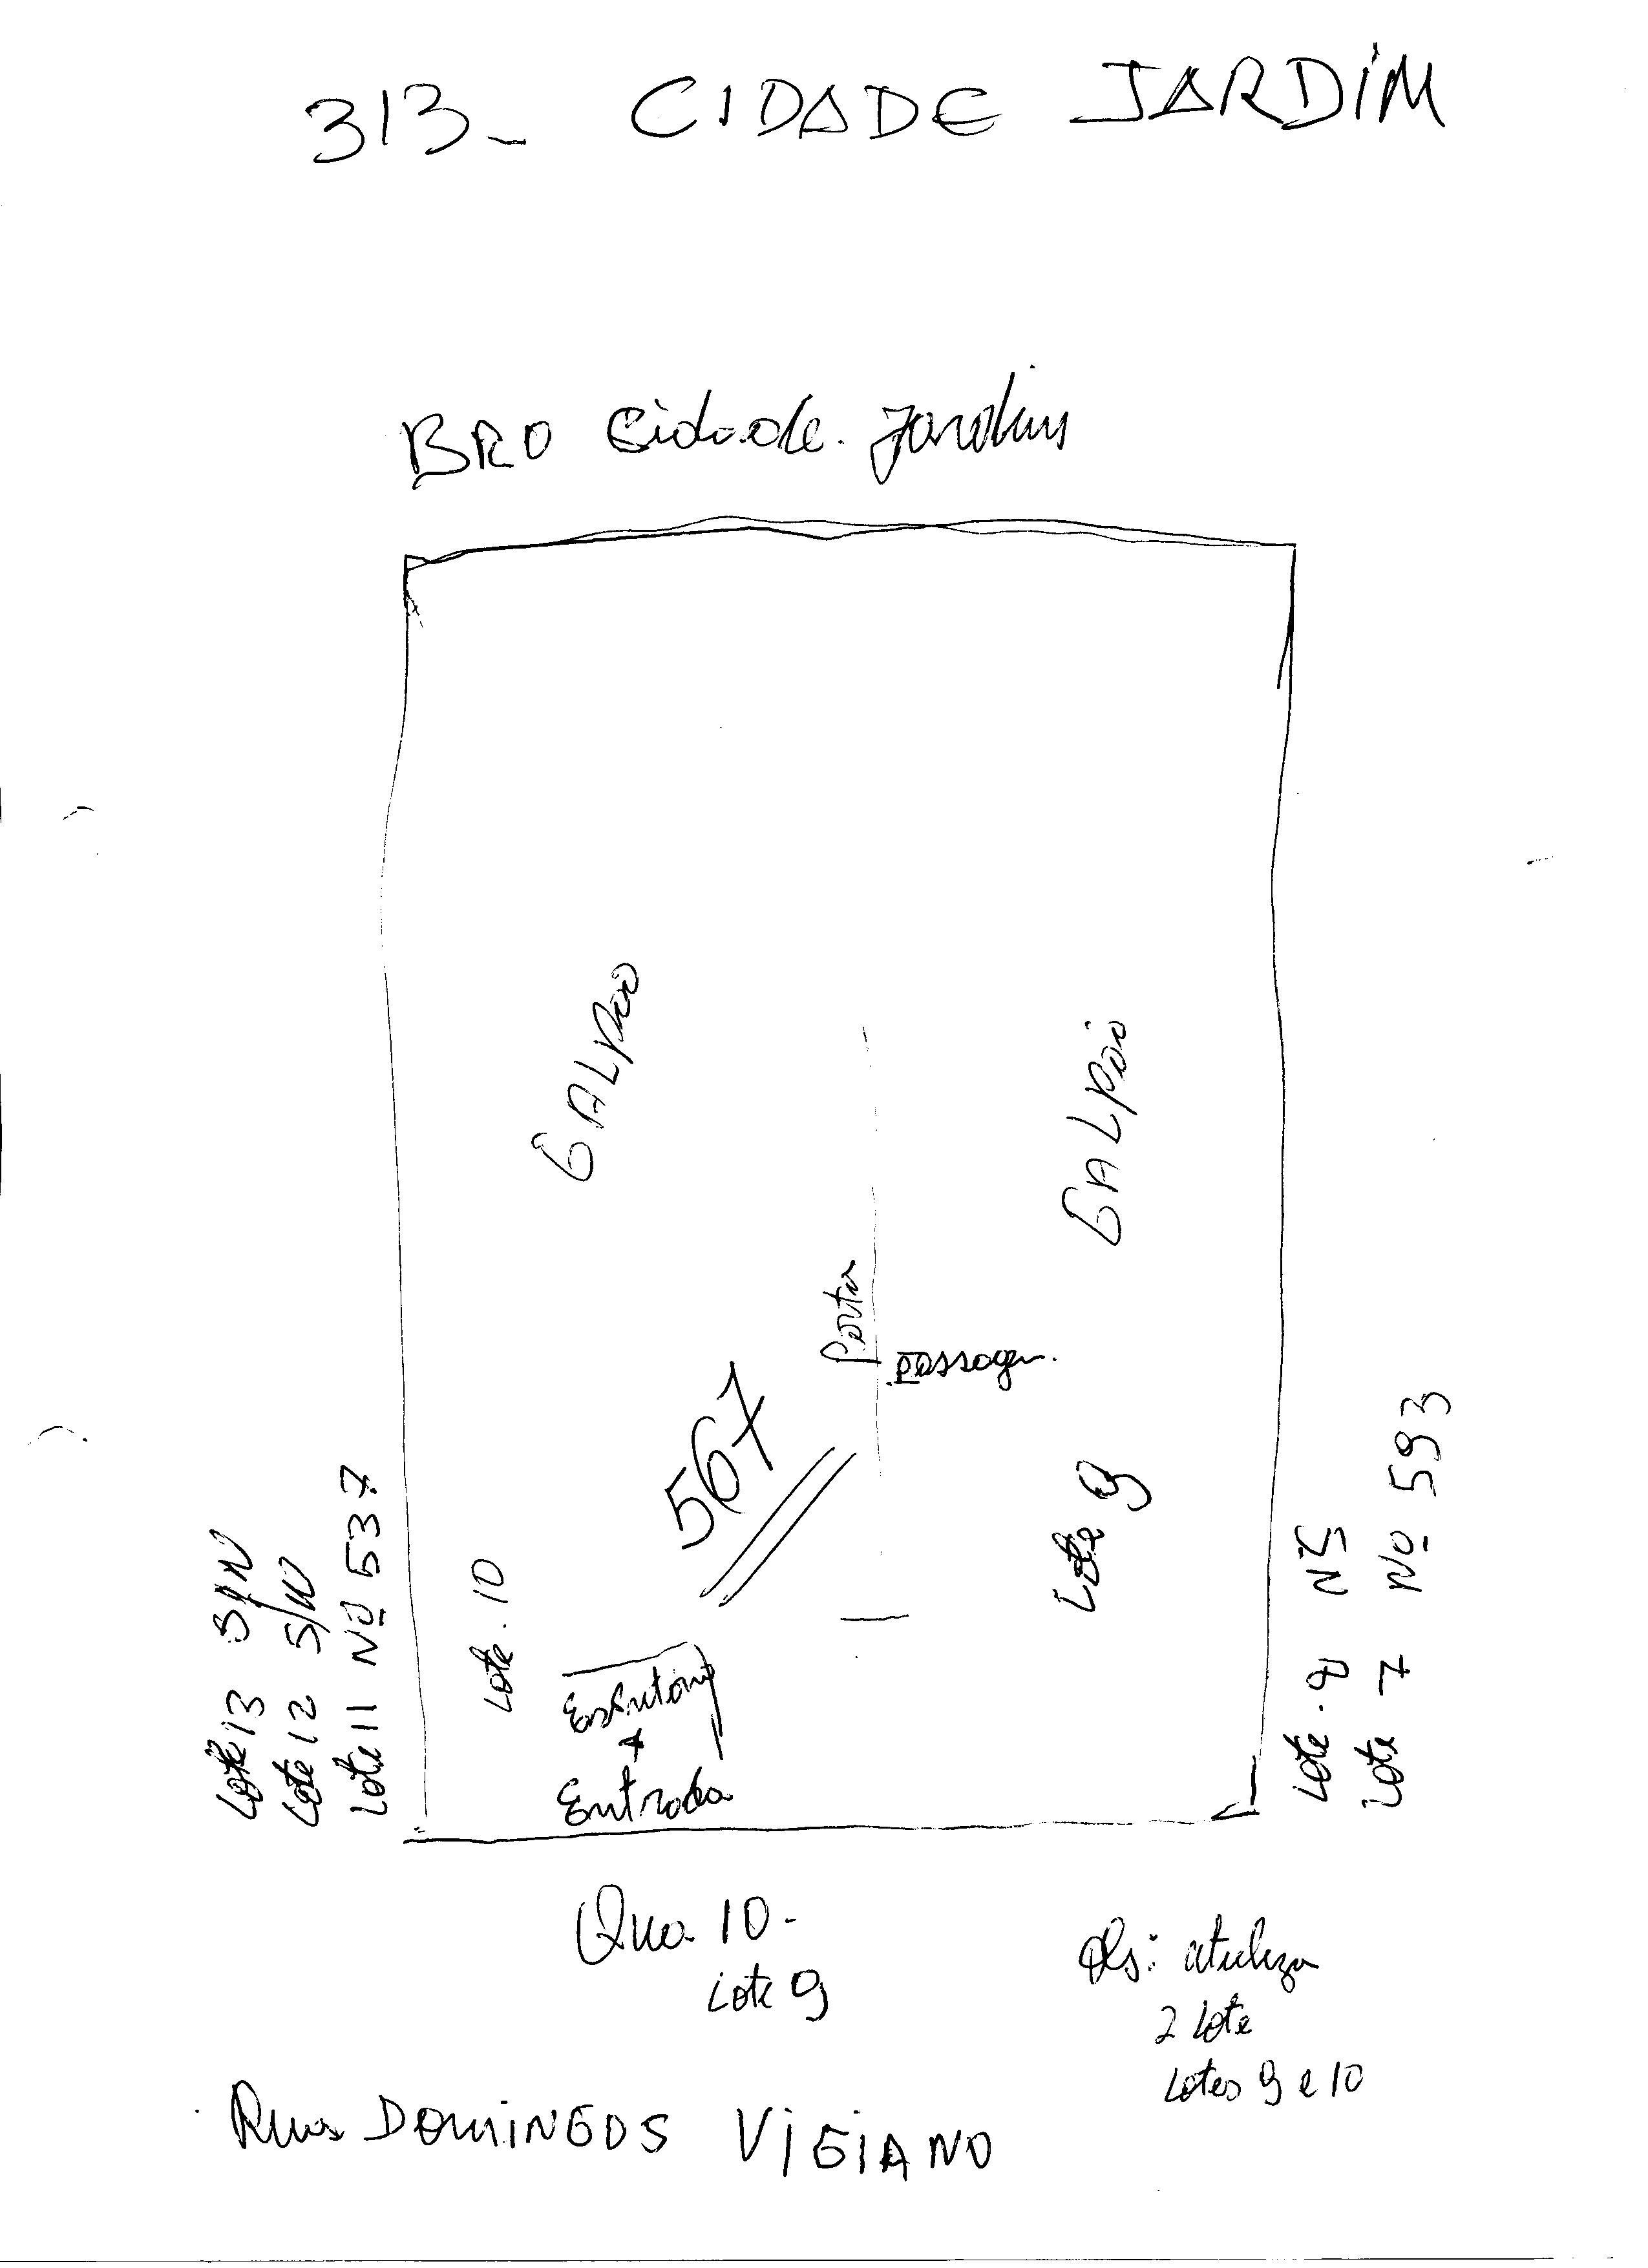 313- CIDADE JARDIM
BRO Cidade Jardim
GALPÃO
GALPÃO
Porta
passagem.
567
Lote 13 S/N
Lote 12 S/N
Lote 11 Nº 537
Lote. 10
Lote 9
Lote. 8
Lote 7 Nº 593
Escritorio
+
Entrada
Qua. 10-
Lote 9
Obs: utiliza
2 Lote
Lotes 9 e 10
Rua DOMINGOS VIGIANO